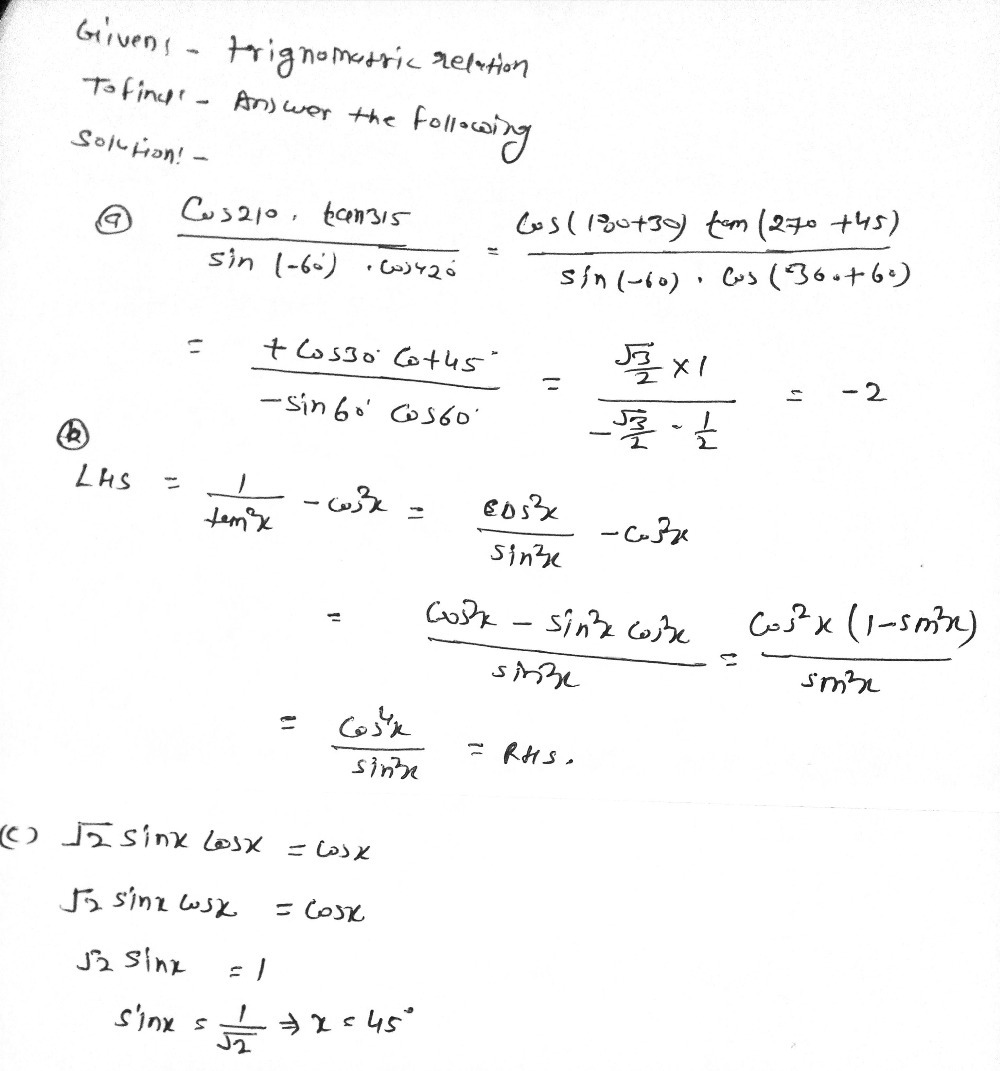 Given:- trignomatric relation
To find:- Answer the following
Solution:-
(a) Cos210. tan315 / sin (-60°) . Cos420° = Cos(180+30) tan (270 +45) / sin (-60) . Cos (360+60)
= + Cos30° Cot45° / -sin60° Cos60° = √3/2 × 1 / -√3/2 - 1/2 = -2
(b)
LHS = 1/tan²x - cos²x = cos²x/sin²x - cos²x
= Cos²x - sin²x cos²x / sin²x = Cos²x (1-sin²x) / sin²x
= Cos⁴x / sin²x = RHS.
(c) √2 sinx cosx = cosx
√2 sinx cosx = cosx
√2 sinx = 1
sinx = 1/√2 ⇒ x = 45°